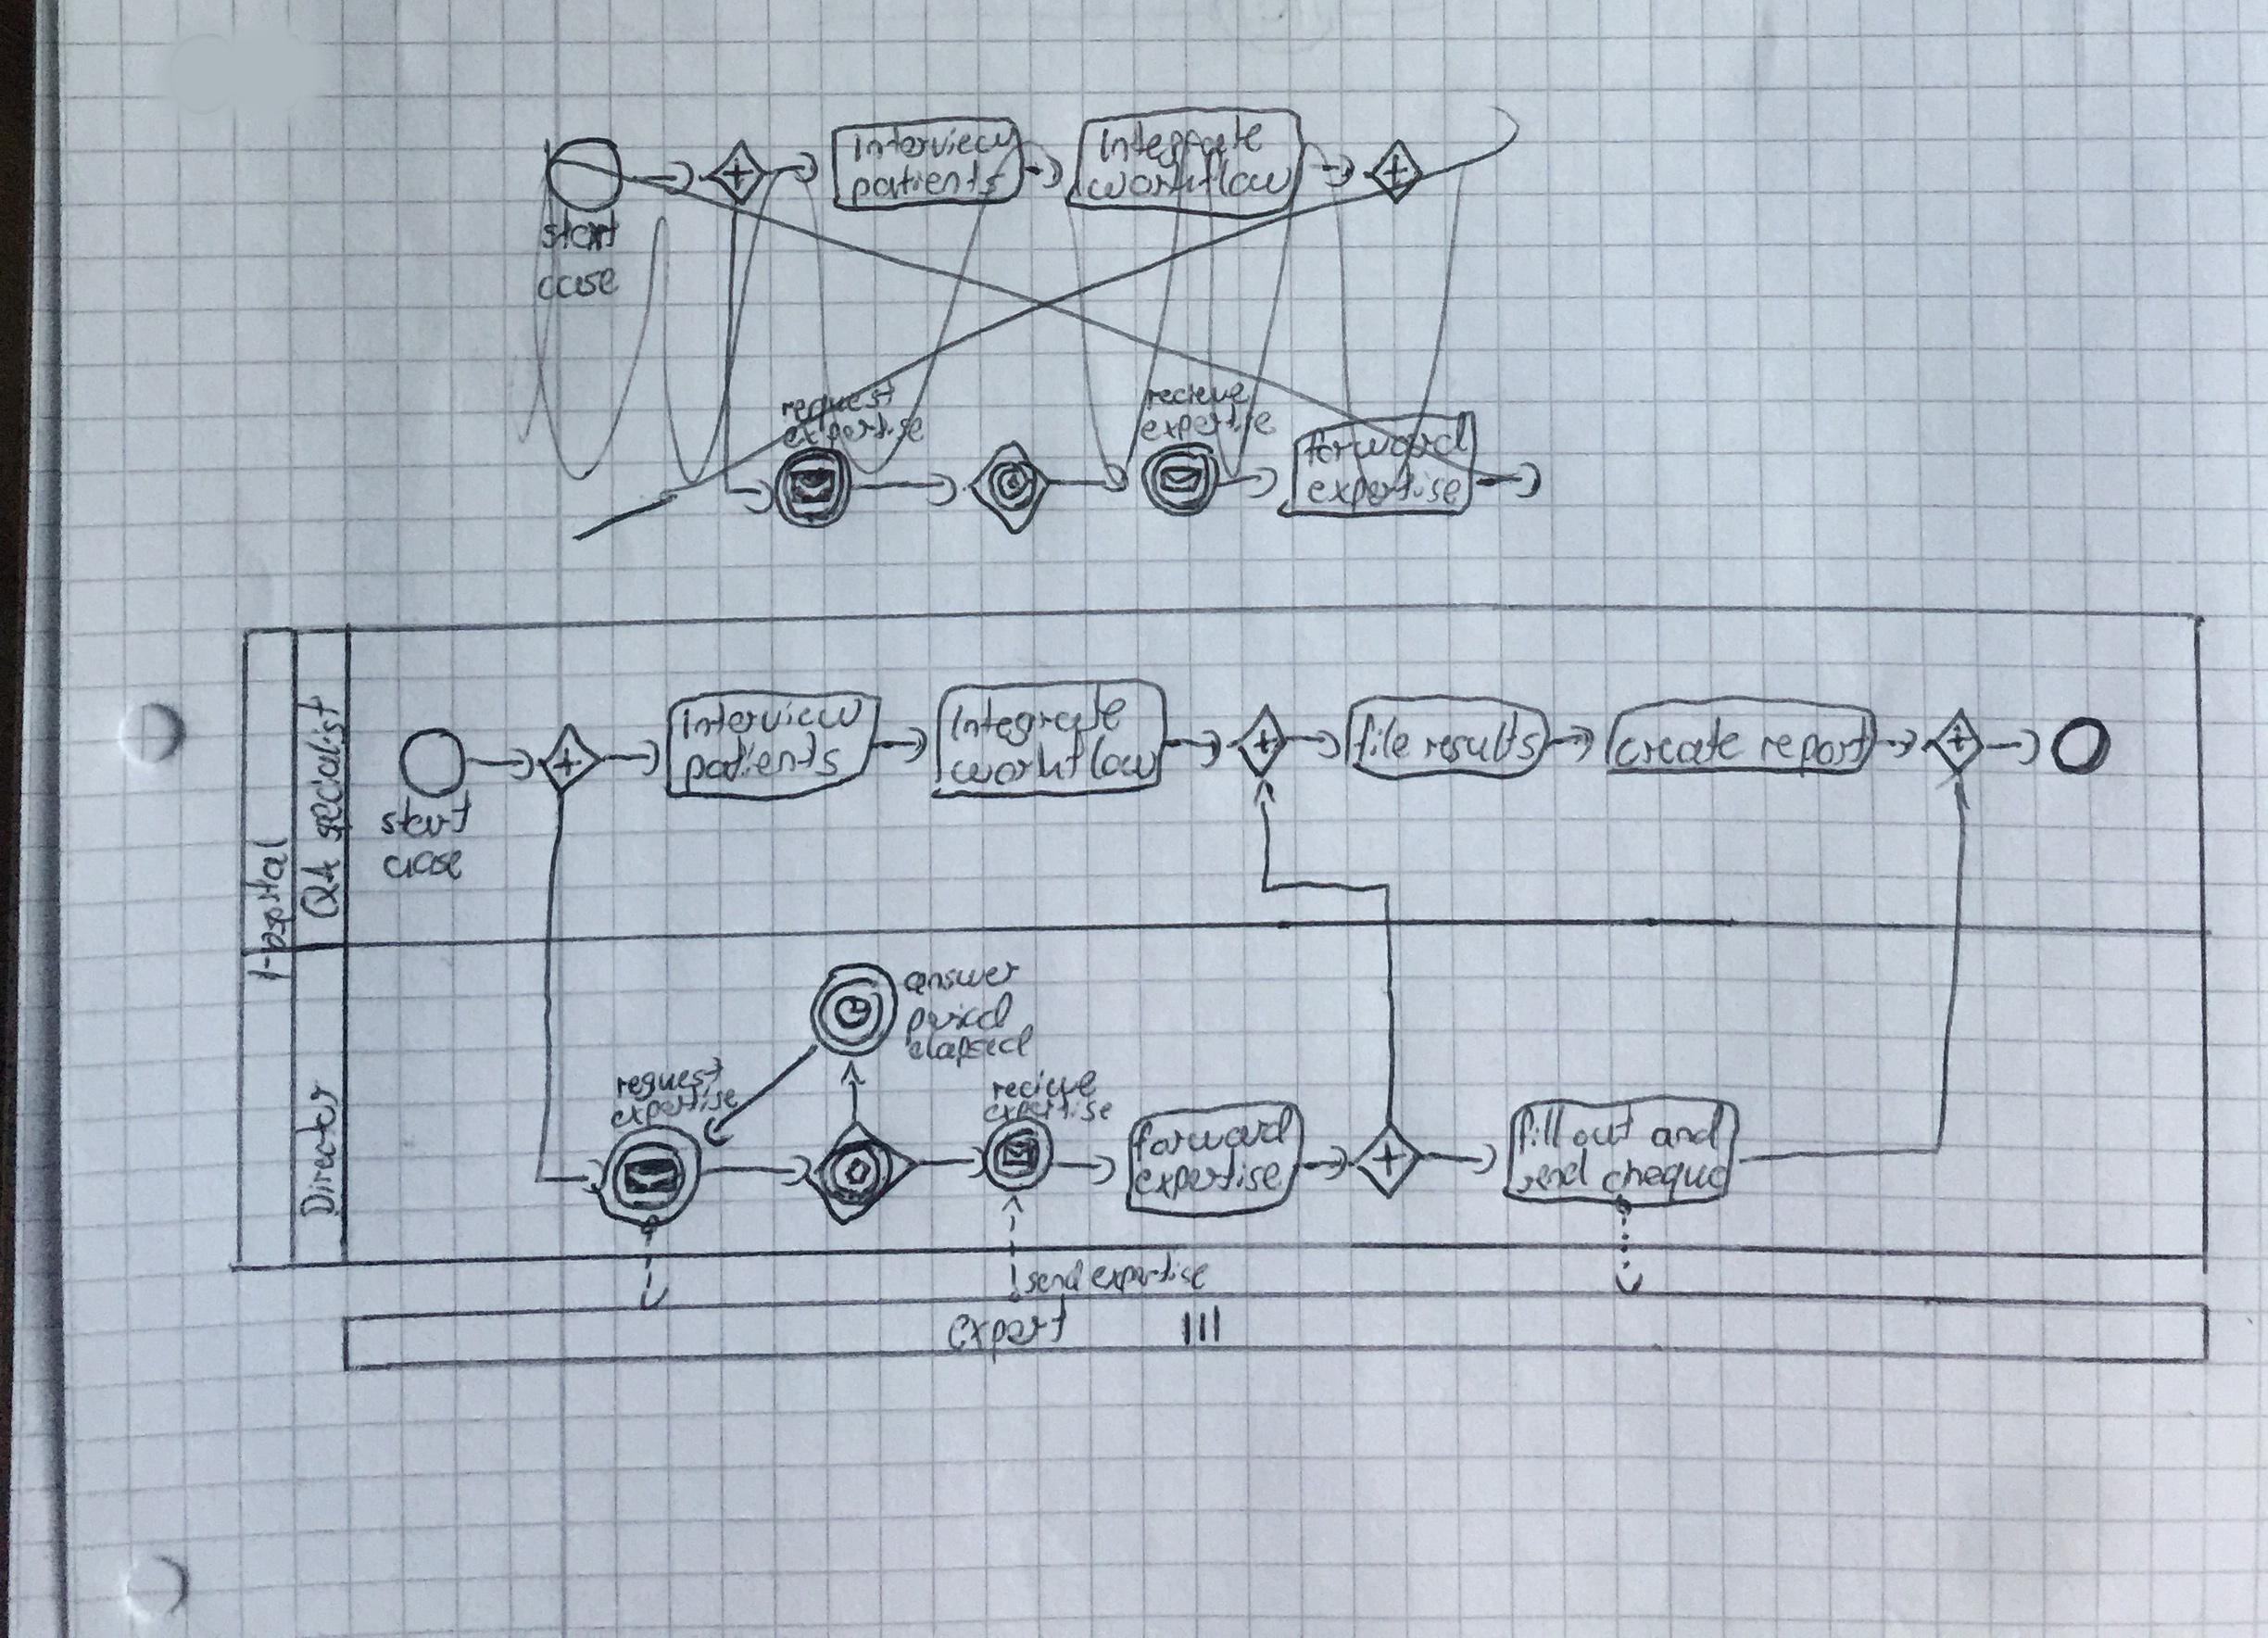 Interview
patients
Integrate
workflow
start
case
request
expertise
recieve
expertise
forward
expertise
Hospital
QA specialist
Interview
patients
Integrate
workflow
file results
create report
start
case
Director
answer
period
elapsed
request
expertise
recieve
expertise
forward
expertise
fill out and
send cheque
send expertise
Expert